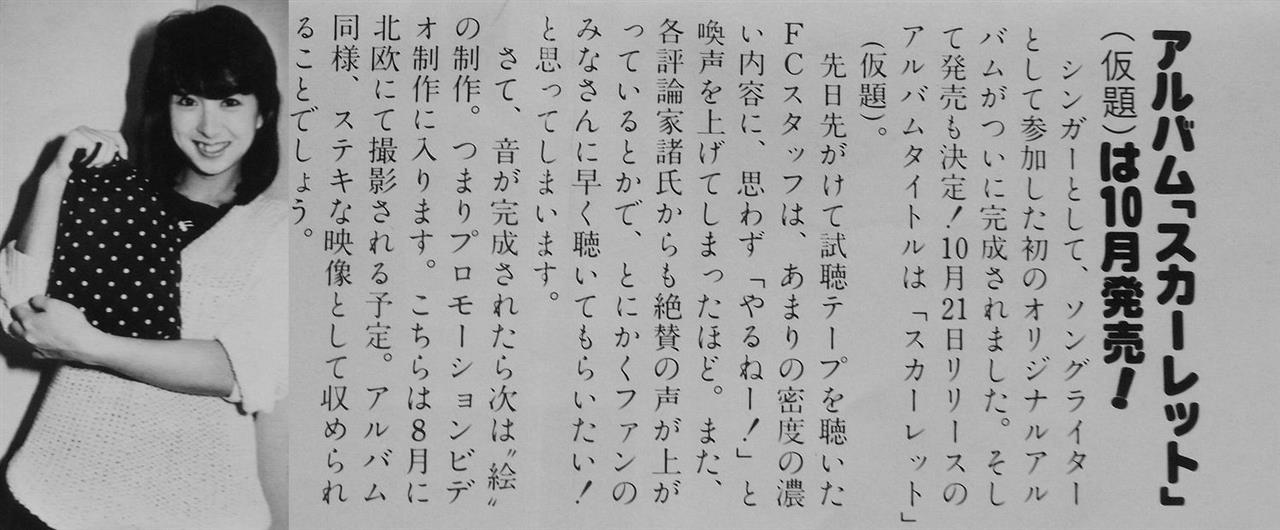 アルバム「スカーレット」
(仮題)は10月発売!
シンガーとして、ソングライター
として参加した初のオリジナルアル
バムがついに完成されました。そし
て発売も決定!10月21日リリースの
アルバムタイトルは「スカーレット」
(仮題)。
先日先がけて試聴テープを聴いた
FCスタッフは、あまりの密度の濃
い内容に、思わず「やるねー!」と
喚声を上げてしまったほど。また、
各評論家諸氏からも絶賛の声が上が
っているとかで、とにかくファンの
みなさんに早く聴いてもらいたい!
と思ってしまいます。
さて、音が完成されたら次は〝絵〟
の制作。つまりプロモーションビデ
オ制作に入ります。こちらは8月に
北欧にて撮影される予定。アルバム
同様、ステキな映像として収められ
ることでしょう。